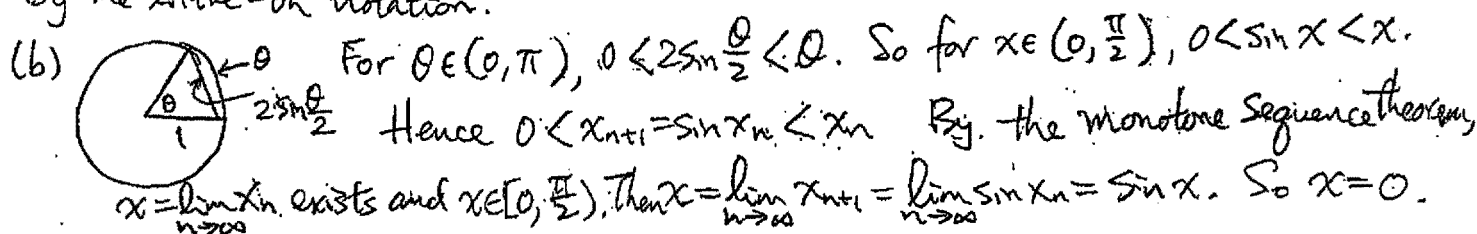 by the little-oh notation.
(b) θ For θ∈(0,π), 0<2sin θ/2<θ. So for x∈(0,π/2), 0<sin x<x.
θ 2sin θ/2 1 Hence 0<xₙ₊₁=sin xₙ<xₙ By. the monotone sequence theorem,
x=lim_{n→∞} xₙ exists and x∈[0,π/2). Then x=lim_{n→∞} xₙ₊₁=lim_{n→∞} sin xₙ=sin x. So x=0.